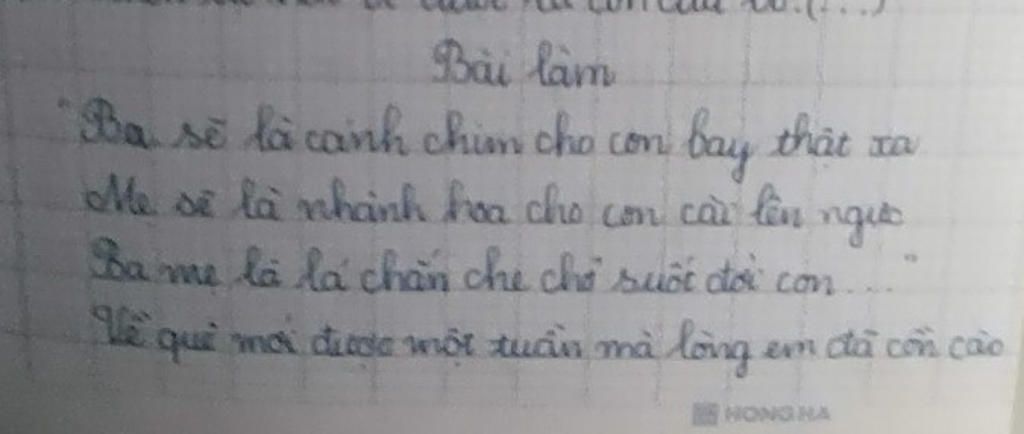 Bài làm
"Ba sẽ là cánh chim cho con bay thật xa
Mẹ sẽ là nhành hoa cho con cài lên ngực
Ba mẹ là lá chắn che chở suốt đời con...."
Về quê mới được một tuần mà lòng em đã cồn cào
HONG HA